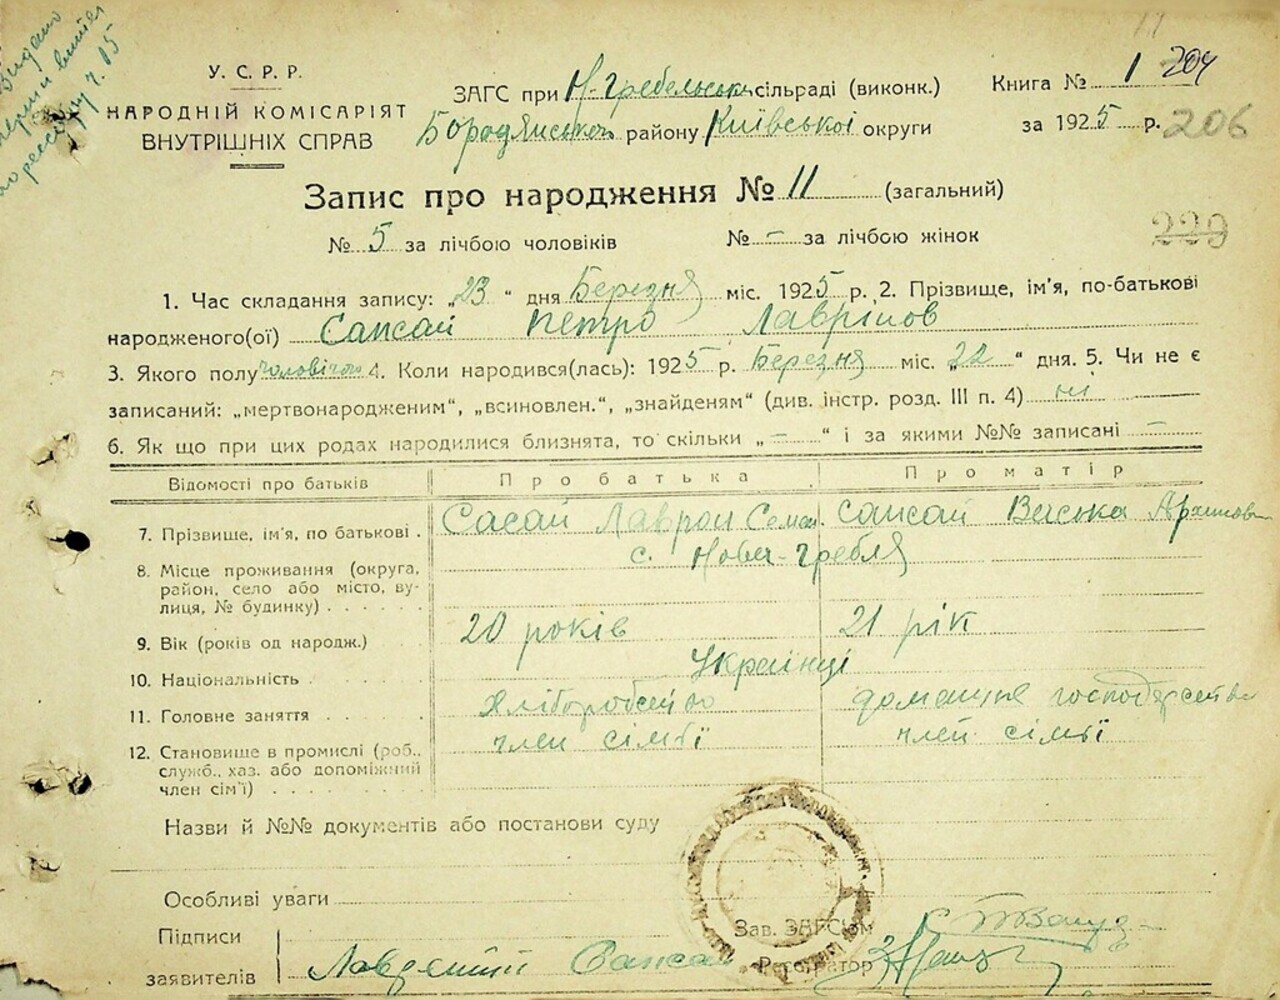 У. С. Р. Р.
НАРОДНІЙ КОМІСАРІЯТ
ВНУТРІШНІХ СПРАВ
ЗАГС при Н-Гребельськ. сільраді (виконк.)
Бородянського району Київської округи
Книга № 1 204
за 1925 р. 206
Запис про народження № 11 (загальний)
№ 5 за лічбою чоловіків № – за лічбою жінок
229
1. Час складання запису: „23“ дня Березня міс. 1925 р. 2. Прізвище, ім'я, по-батькові
народженого(ої) Сапсай Петро Лаврінов
3. Якого полу чоловічого 4. Коли народився(лась): 1925 р. Березня міс. „22“ дня. 5. Чи не є
записаний: „мертвонародженим“, „всиновлен.“, „знайденям“ (див. інстр. розд. III п. 4) ні
6. Як що при цих родах народилися близнята, то скільки „–“ і за якими №№ записані –
Відомості про батьків Про батька Про матір
7. Прізвище, ім'я, по батькові . Сасай Лаврон Семен. Сапсай Васька
8. Місце проживання (округа, район, село або місто, вулиця, № будинку) с. Нова-Гребля
9. Вік (років од народж.) 20 років 21 рік
10. Національність Українці
11. Головне заняття Хліборобство домашнє господарство
12. Становище в промислі (роб., служб., хаз. або допоміжний член сім'ї) член сімьї член сімьї
Назви й №№ документів або постанови суду
Особливі уваги
Підписи
заявителів Сапсай
Зав. ЗАГСом
Реєстратор